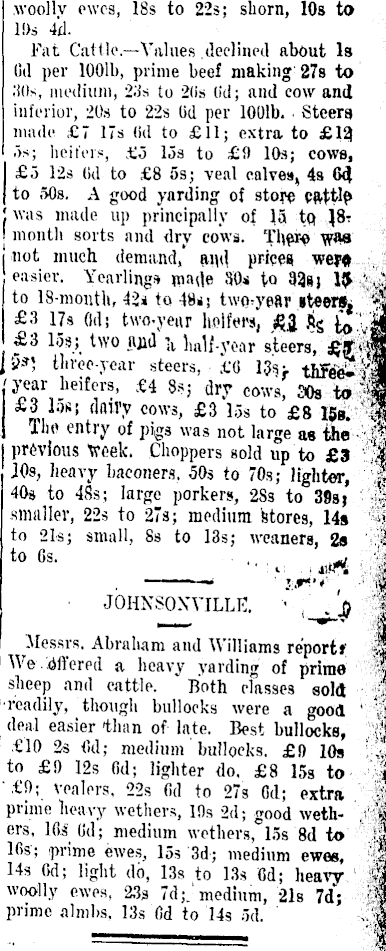 woolly ewes, 18s to 22s; shorn, 10s to
19s 4d.
Fat Cattle.—Values declined about 1s
6d per 100lb, prime beef making 27s to
30s, medium, 23s to 26s 6d; and cow and
inferior, 20s to 22s 6d per 100lb. Steers
made £7 17s 6d to £11; extra to £12
5s; heifers, £5 15s to £9 10s; cows,
£5 12s 6d to £8 5s; veal calves, 4s 6d
to 50s. A good yarding of store cattle
was made up principally of 15 to 18-
month sorts and dry cows. There was
not much demand, and prices were
easier. Yearlings made 30s to 32s; 15
to 18-month, 42s to 48s; two-year steers,
£3 17s 6d; two-year heifers, 8s to
£3 15s; two and a half-year steers,
5s; three-year steers, £6 13s; three-
year heifers, £4 8s; dry cows, 30s to
£3 15s; dairy cows, £3 15s to £8 15s.
The entry of pigs was not large as the
previous week. Choppers sold up to £3
10s, heavy baconers, 50s to 70s; lighter,
40s to 48s; large porkers, 28s to 39s;
smaller, 22s to 27s; medium stores, 14s
to 21s; small, 8s to 13s; weaners, 2s
to 6s.
JOHNSONVILLE.
Messrs. Abraham and Williams report:
We offered a heavy yarding of prime
sheep and cattle. Both classes sold
readily, though bullocks were a good
deal easier than of late. Best bullocks,
£10 2s 6d; medium bullocks, £9 10s
to £9 12s 6d; lighter do, £8 15s to
£9; vealers, 22s 6d to 27s 6d; extra
prime heavy wethers, 19s 2d; good weth-
ers, 16s 6d; medium wethers, 15s 8d to
16s; prime ewes, 15s 3d; medium ewes,
14s 6d; light do, 13s to 13s 6d; heavy
woolly ewes, 23s 7d; medium, 21s 7d;
prime almbs, 13s 6d to 14s 5d.